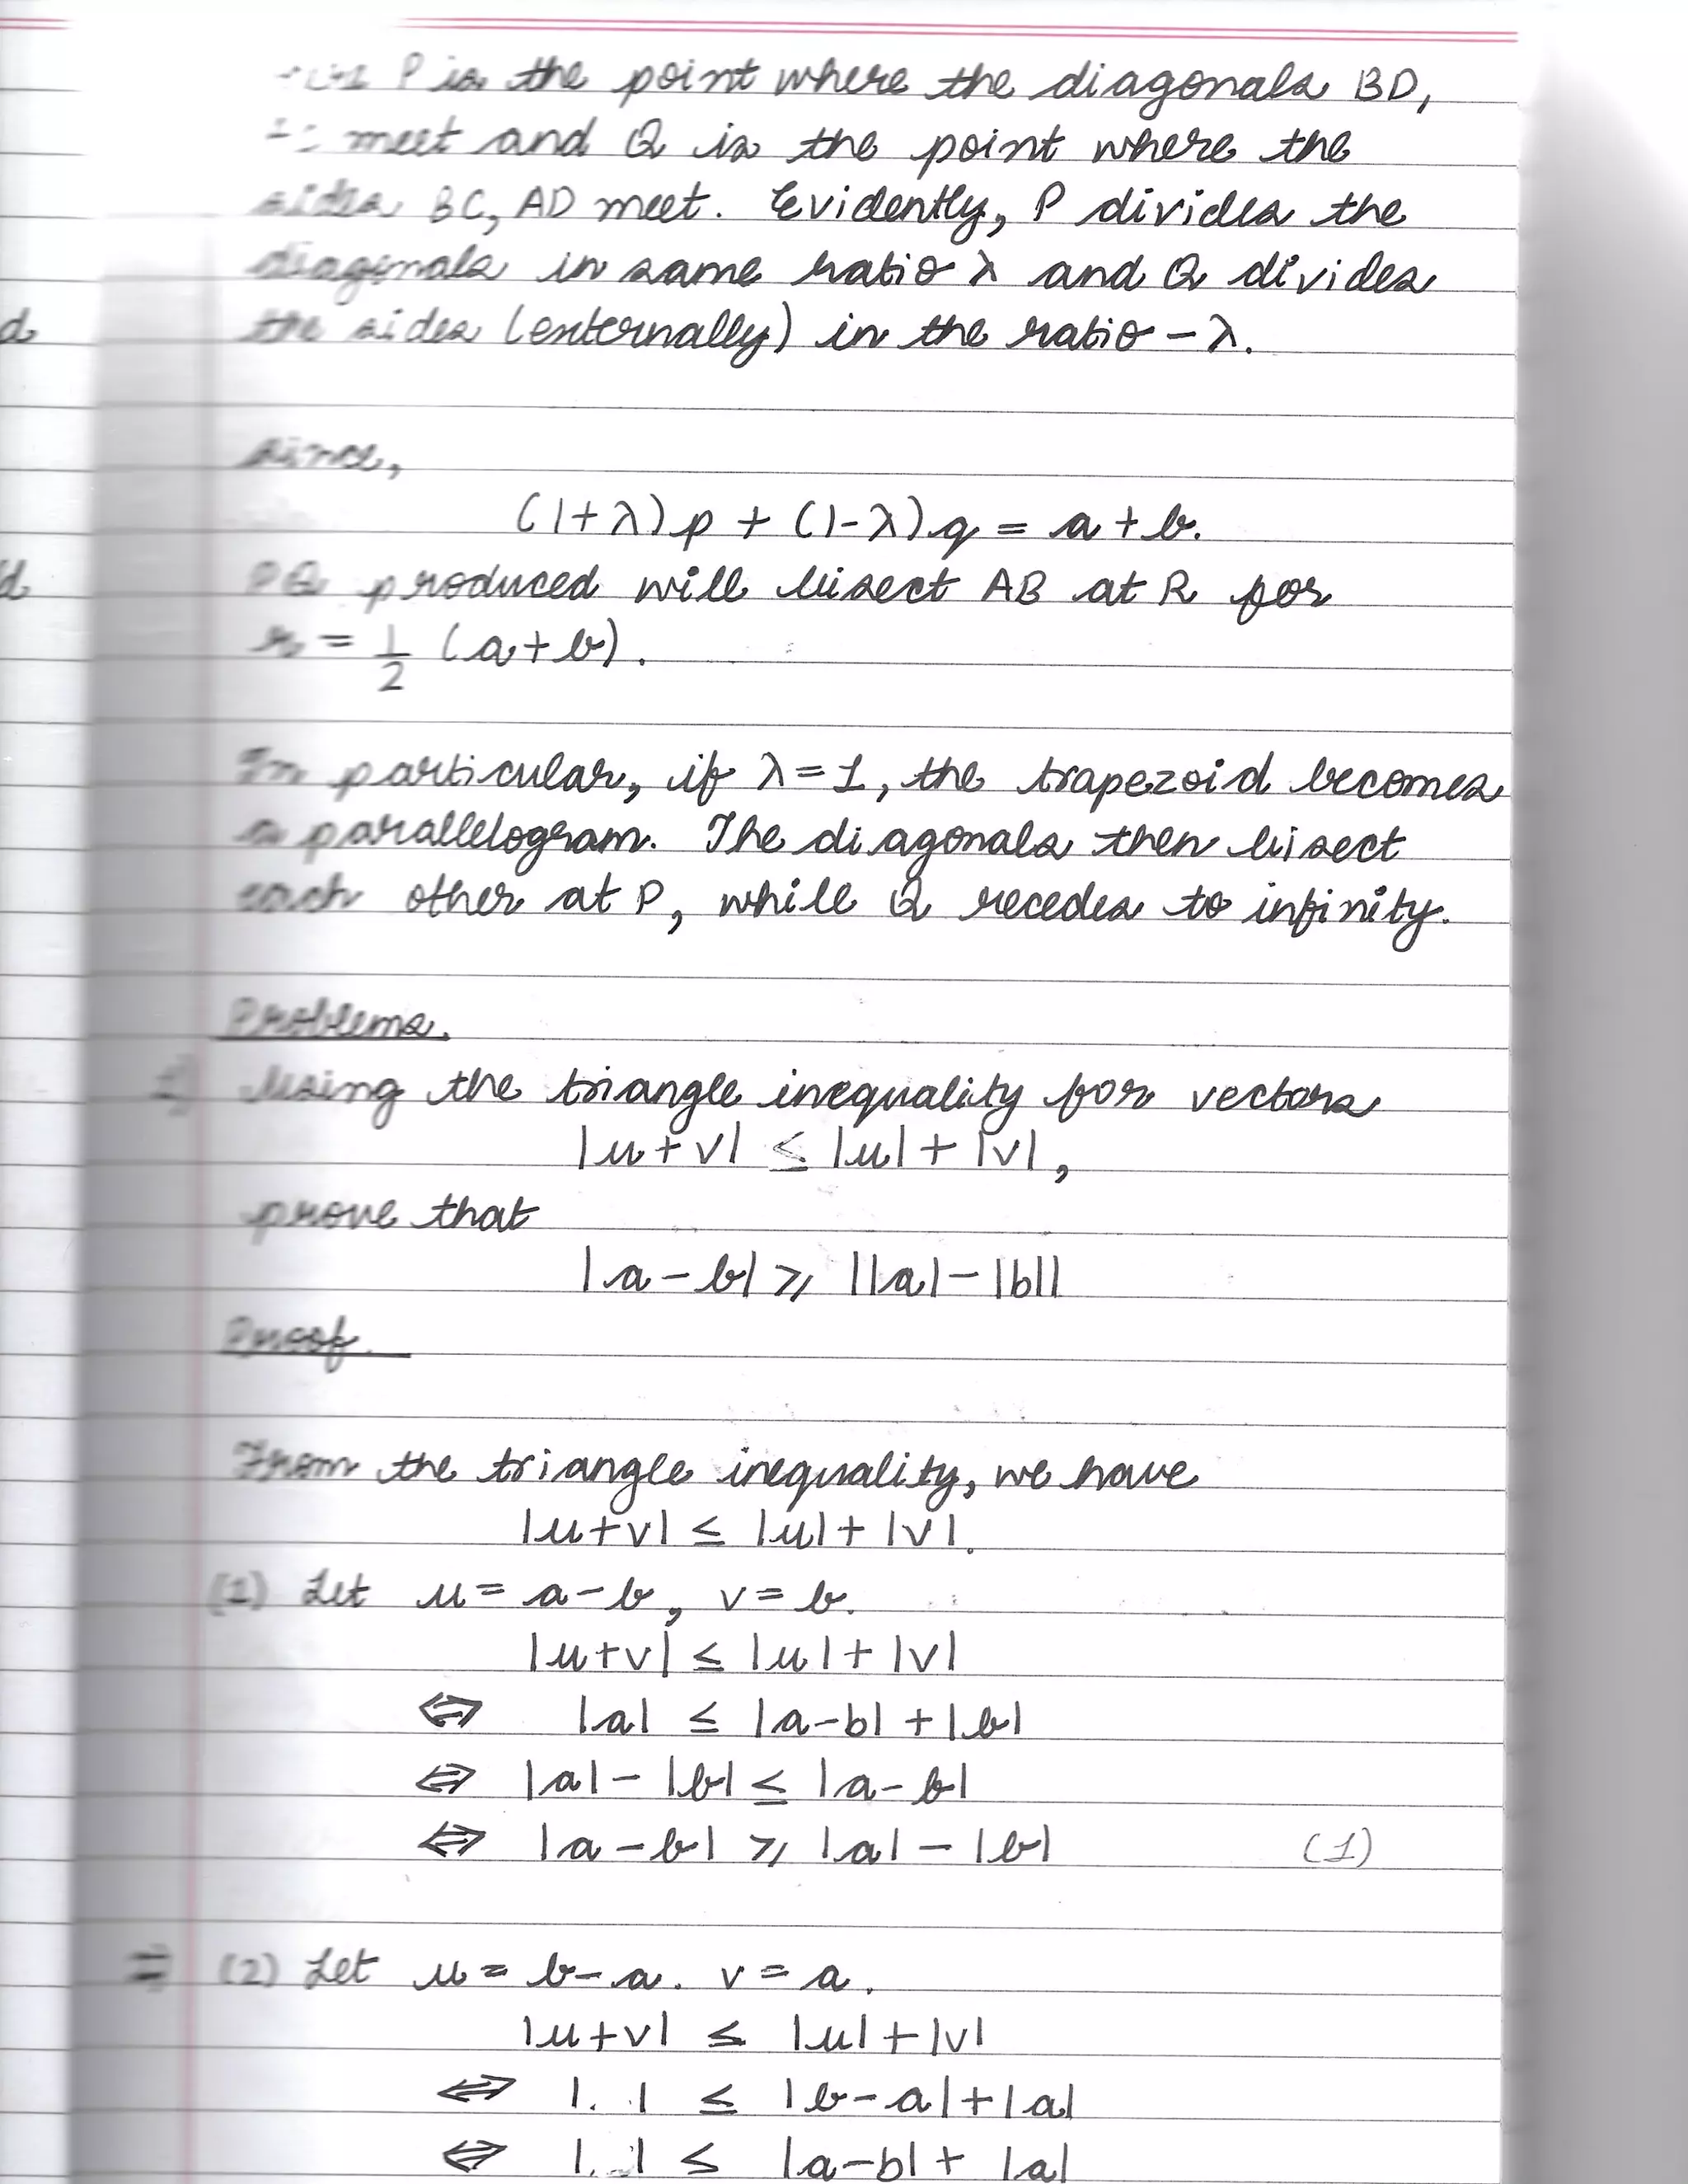 P is the point where the diagonals BD,
meet and Q is the point where the
sides BC, AD meet. Evidently, P divides the
diagonals in same ratio λ and Q divides
the sides (externally) in the ratio - λ.
since,
(1+λ)p + (1-λ)q = a + b.
PQ produced will bisect AB at R for
r = 1/2 (a+b).
In particular, if λ=1, the trapezoid becomes
a parallelogram. The diagonals then bisect
each other at P, while Q recedes to infinity.
Problems.
1) Using the triangle inequality for vectors
|u+v| ≤ |u|+|v|,
prove that
|a-b| ≥ ||a|-|b||
Proof.
From the triangle inequality, we have
|u+v| ≤ |u|+|v|.
(1) Let u = a-b, v = b.
|u+v| ≤ |u|+|v|
⇔ |a| ≤ |a-b|+|b|
⇔ |a|-|b| ≤ |a-b|
⇔ |a-b| ≥ |a|-|b| (1)
(2) Let u = b-a. v = a.
|u+v| ≤ |u|+|v|
⇔ | | ≤ |b-a|+|a|
⇔ | | ≤ |a-b|+|a|